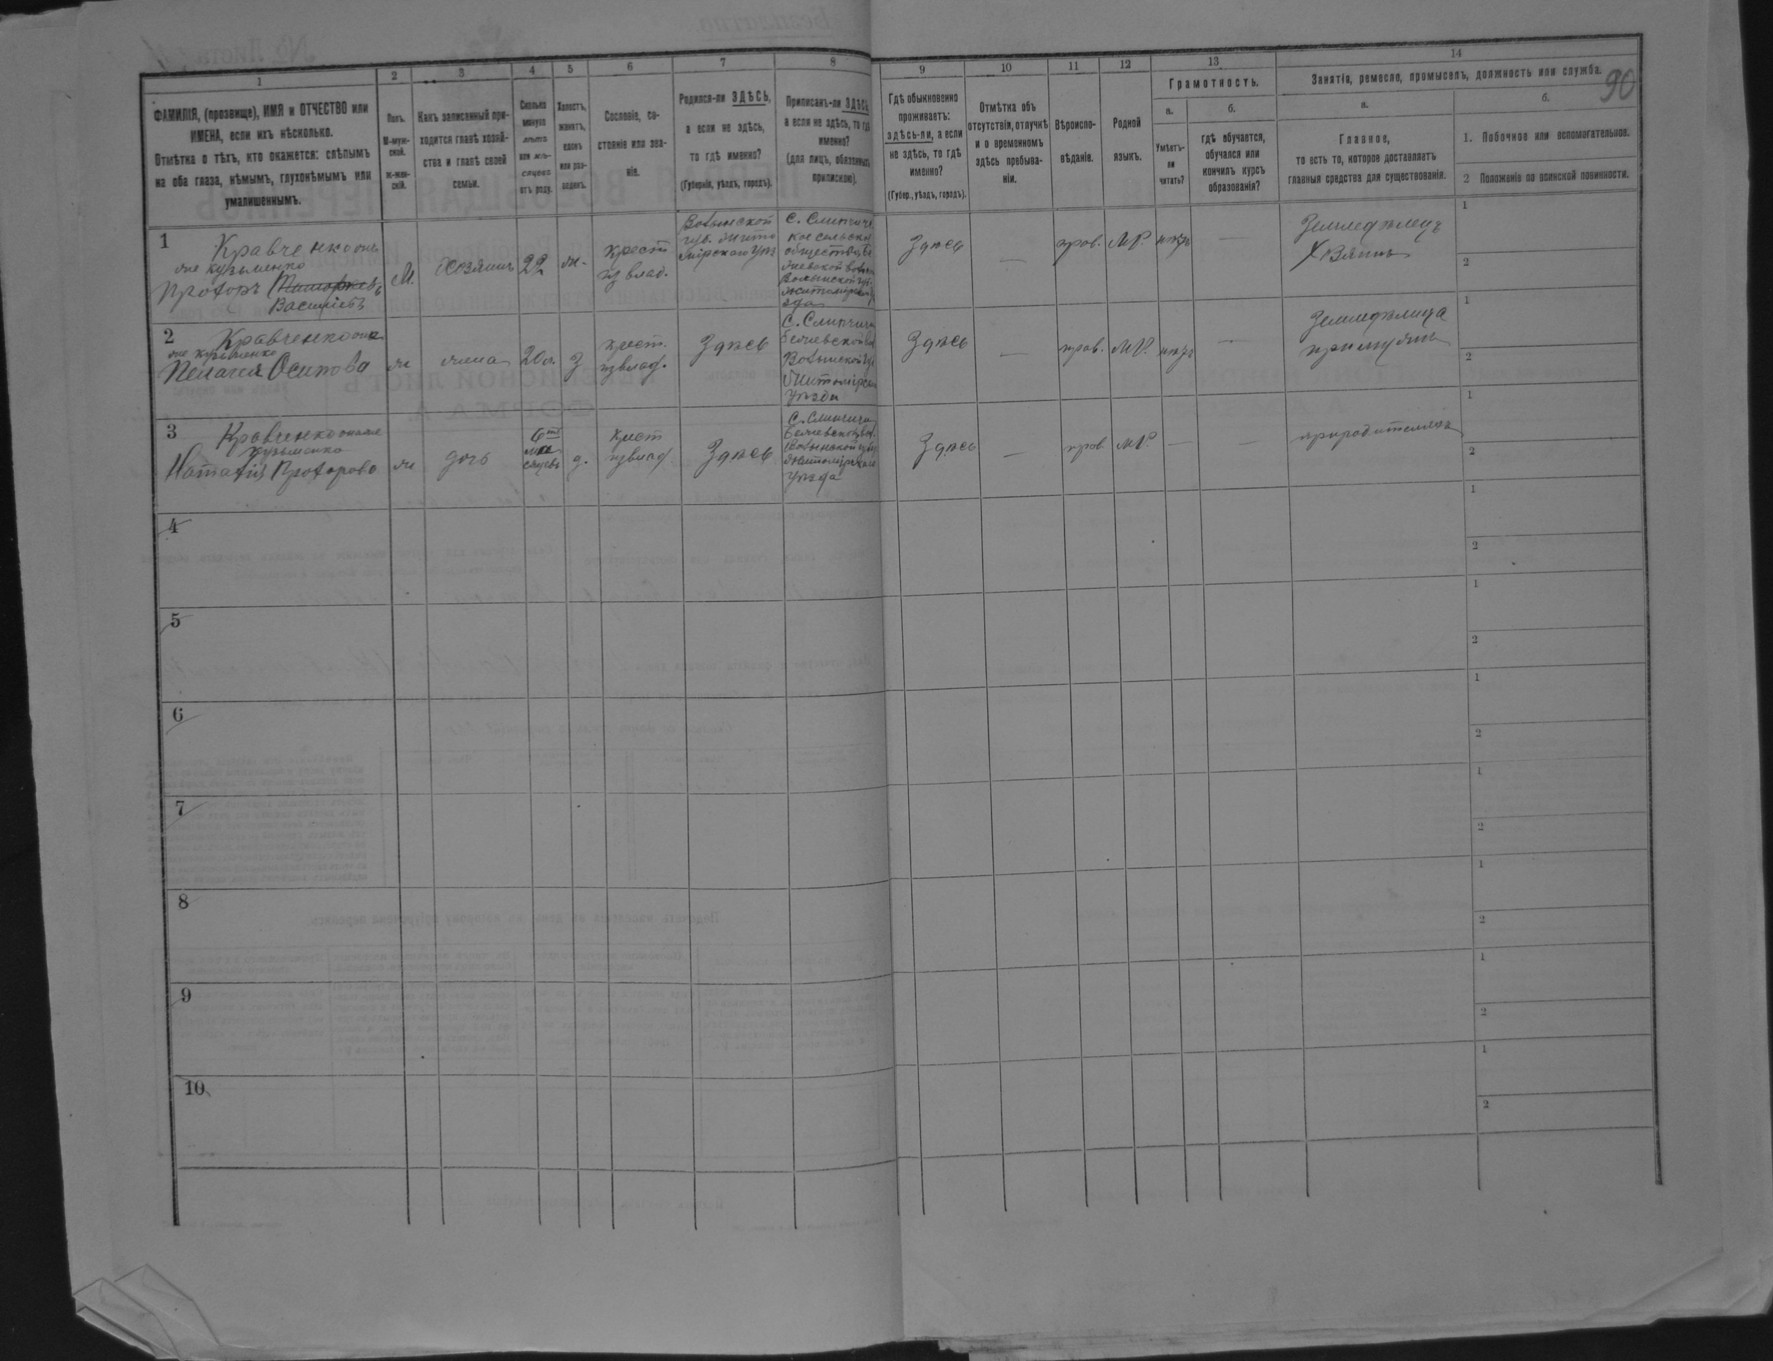 90
1
2
3
4
5
6
7
8
9
10
11
12
13
14
ФАМИЛІЯ, (прозвище), ИМЯ и ОТЧЕСТВО или
ИМЕНА, если ихъ нѣсколько.
Отмѣтка о тѣхъ, кто окажется: слѣпымъ
на оба глаза, нѣмымъ, глухонѣмымъ или
умалишеннымъ.
Полъ.
М-муж-
ской.
Ж-жен-
скій.
Какъ записанный при-
ходится главѣ хозяй-
ства и главѣ своей
семьи.
Сколько
минуло
лѣтъ
или мѣ-
сяцевъ
отъ роду.
Холостъ,
женатъ,
вдовъ
или раз-
веденъ.
Сословіе, со-
стояніе или зва-
ніе.
Родился-ли ЗДѢСЬ,
а если не здѣсь,
то гдѣ именно?
(Губернія, уѣздъ, городъ).
Приписанъ-ли ЗДѢСЬ,
а если не здѣсь, то гдѣ
именно?
(для лицъ, обязанныхъ
припискою).
Гдѣ обыкновенно
проживаетъ:
здѣсь-ли, а если
не здѣсь, то гдѣ
именно?
(Губер., уѣздъ, городъ).
Отмѣтка объ
отсутствіи, отлучкѣ
и о временномъ
здѣсь пребыва-
ніи.
Вѣроиспо-
вѣданіе.
Родной
языкъ.
Грамотность.
а.
Умѣетъ-
ли
читать?
б.
гдѣ обучается,
обучался или
кончилъ курсъ
образованія?
Занятія, ремесло, промыселъ, должность или служба.
а.
Главное,
то есть то, которое доставляетъ
главныя средства для существованія.
б.
1. Побочное или вспомогательное.
2 Положеніе по воинской повинности.
1
Кравченко онъ
же Кузьменко
Прохоръ
Васильевъ
М.
Хозяинъ
22
ж.
крест
из влад.
Волынской
губ. Жито
мірскаго Уѣз
С. Слипчиц
кое сельско
общество
Волынской губ.
Житомірска
Здѣсь
—
прав.
МР.
нѣтъ
—
Земледѣлецъ
Хозяинъ
1
2
2
Кравченко она
же Кузьменко
Пелагея Осипова
ж
жена
20
з
крест.
из влад.
Здѣсь
С. Слипчицы
Волынской
Житомірска
Уѣзда
Здѣсь
—
прав.
МР.
нѣтъ
—
Земледѣлица
при мужѣ
1
2
3
Кравченко она же
Кузьменко
Наталія Прохорова
ж
дочь
6ть
мѣ
сяцевъ
д.
крест
из влад.
Здѣсь
С. Слипчицы
Волынской губ
Житомірскаго
Уѣзда
Здѣсь
—
прав
МР.
—
—
при родителяхъ
1
2
4
1
2
5
1
2
6
1
2
7
1
2
8
1
2
9
1
2
10
1
2